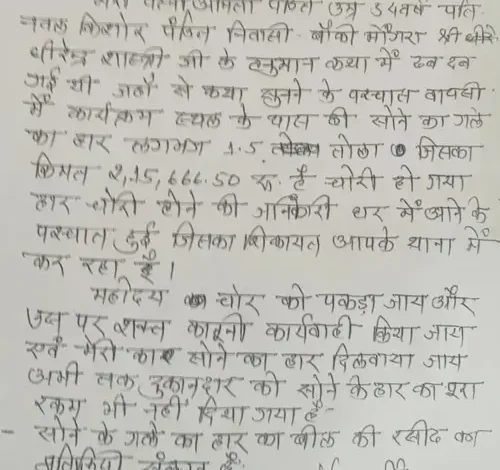 मेरी पत्नी अमिता पंडित उम्र 54 वर्ष पति
नवल किशोर पंडित निवासी - बाँकी मोंगरा श्री धीरे
धीरेन्द्र शास्त्री जी के हनुमान कथा में ढप ढप
गई थी जहाँ से कथा सुनने के पश्चात वापसी
में कार्यक्रम स्थल के पास की सोने का गले
का हार लगभग 1.5 तोला जिसका
किमत 2,15,666.50 रु. है चोरी हो गया
हार चोरी होने की जानकारी घर में आने के
पश्चात हुई जिसका शिकायत आपके थाना में
कर रहा है।
महोदय चोर को पकड़ा जाय और
उस पर शक्त कानूनी कार्यवाही किया जाय
एवं मेरी सोने का हार दिलवाया जाय
अभी तक दुकानदार को सोने के हार का पुरा
रकम भी नहीं दिया गया है-
- सोने के गले का हार का बील की रसीद का
प्रतिलिपी संलग्न है: